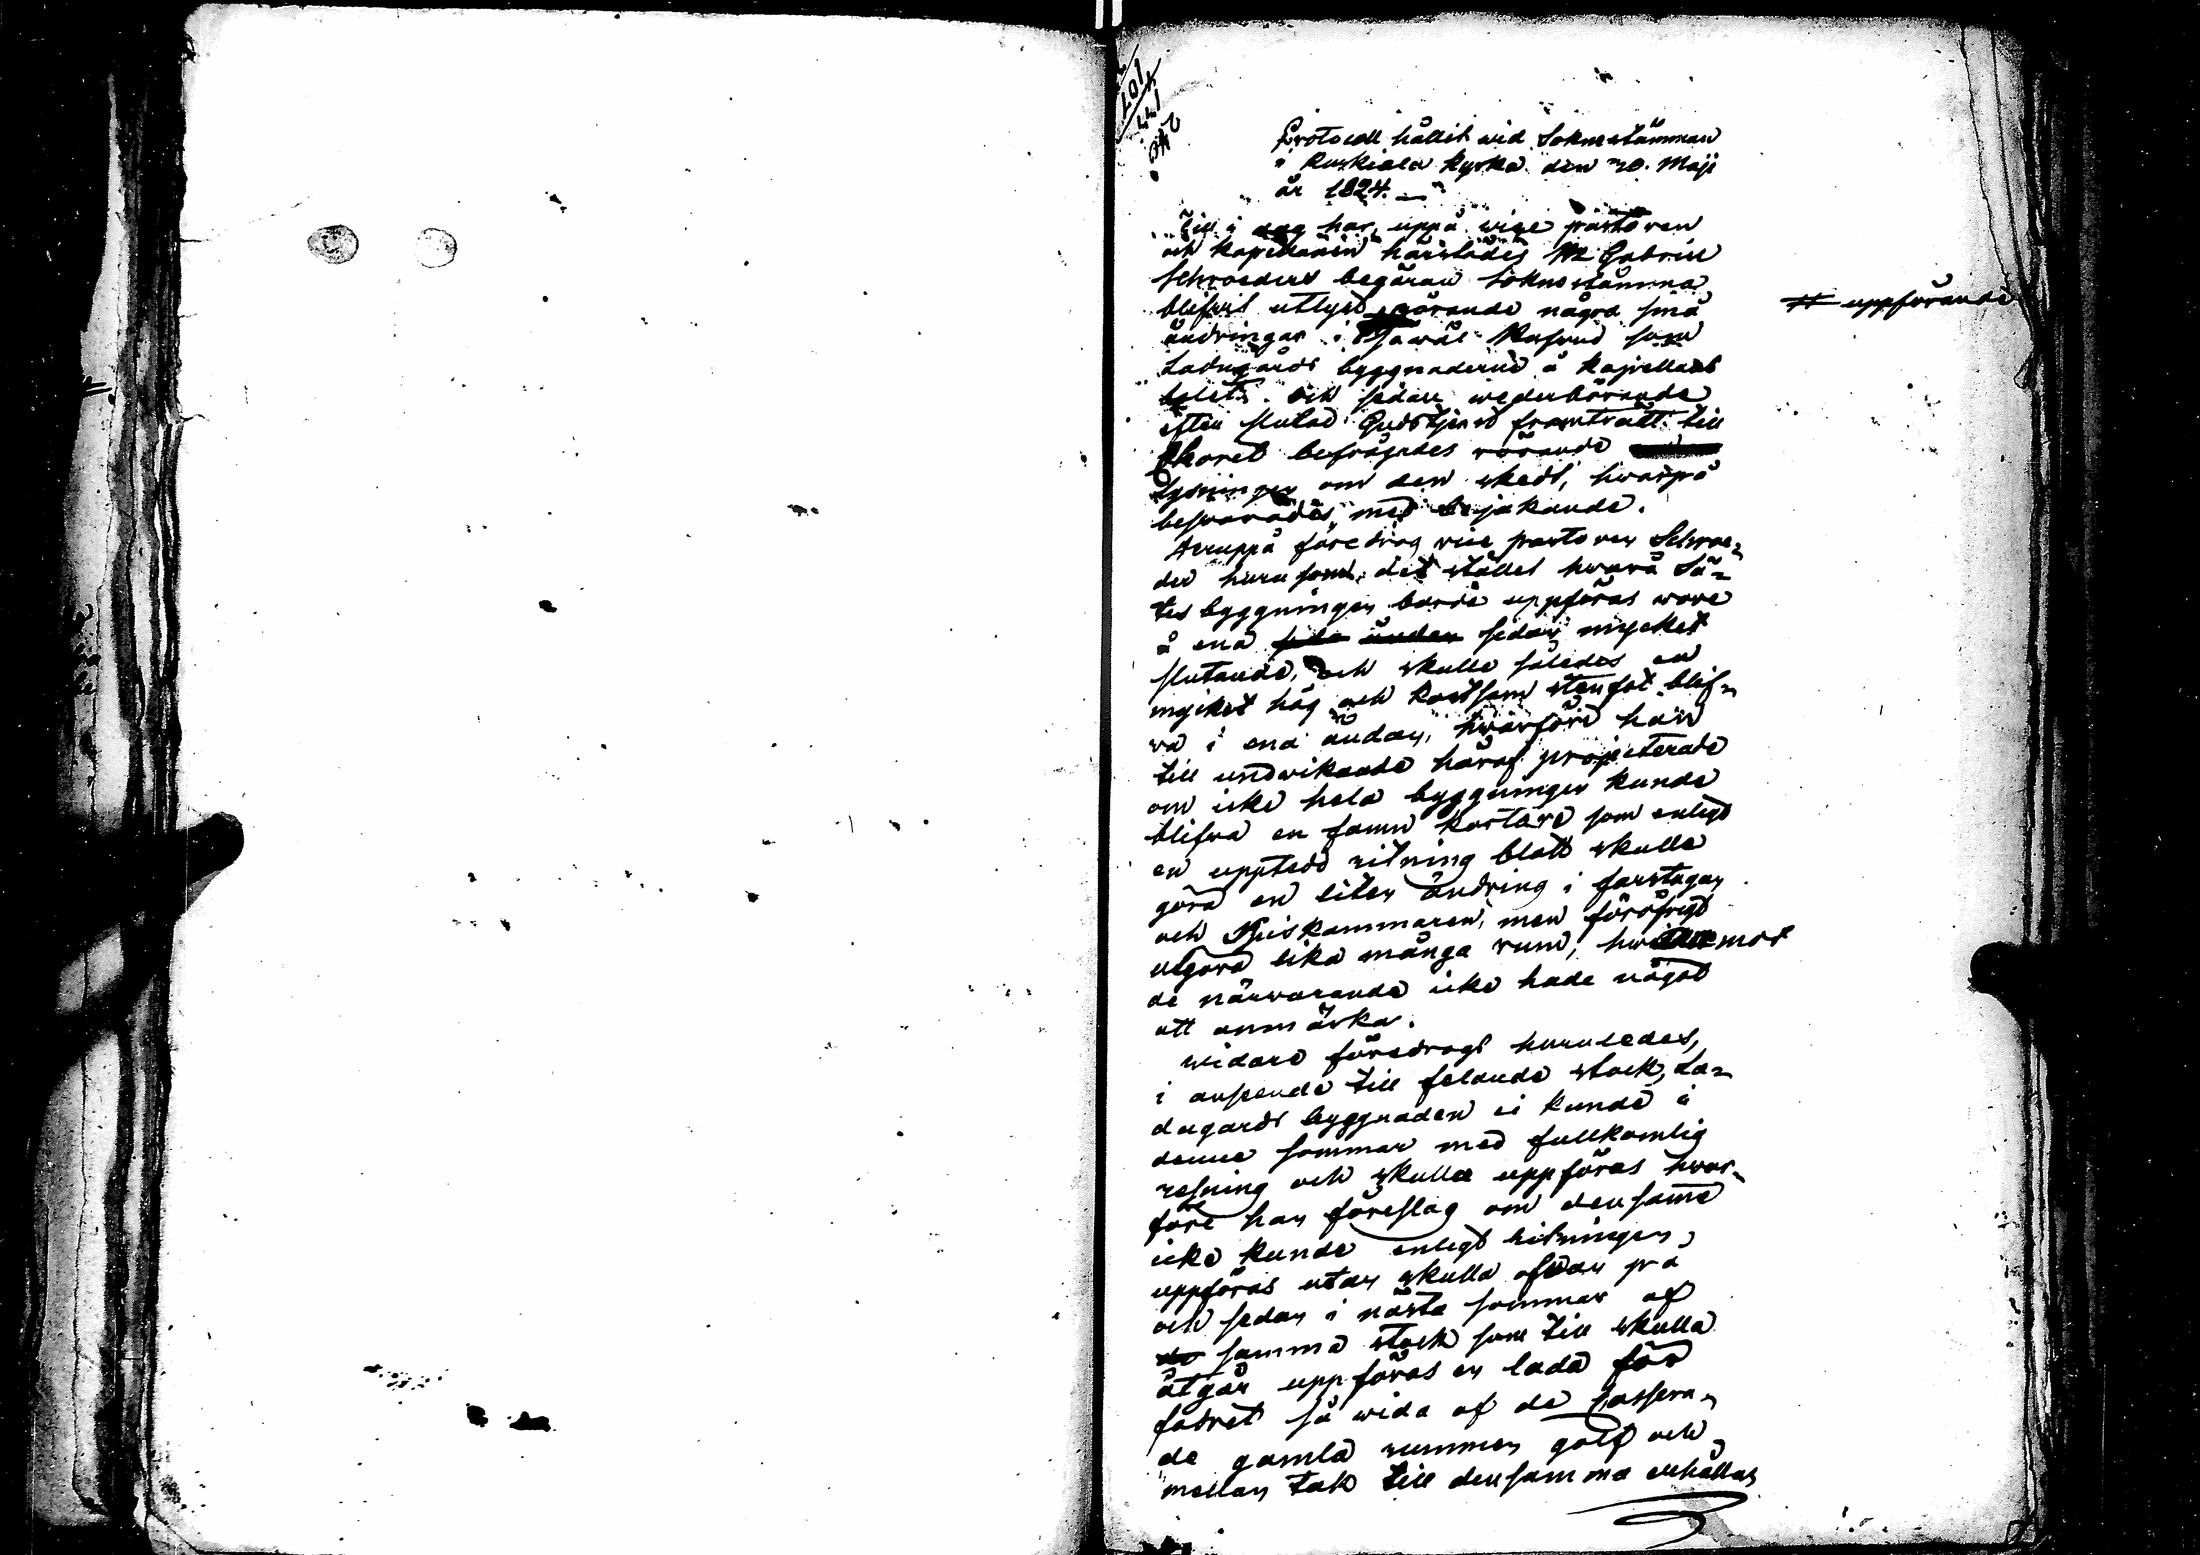 Protocoll hållit wid Soknestämman
i Ruskiala kyrka den 30. Maji
år 1824. —
Till i dag har uppå vice pastoren
och kapellanen härstädes M. Gabriel
Schroeders begäran Soknestämma
blifvit utlyst, rörande några små
ändringar i såwäl Karacters som
Ladugårds byggnaderne å kapellans
bolet. och sedan wederbörande
efter slutad Gudstjenst framträtt till
Choret befrågades rörande
Lysningen om den skedt, hwarpå
beswarades med bejakande.
Heruppå föredrog vice pastoren Schroe=
der hurusom det stället hwarå Sä=
tes byggningen borde uppföras wore
å ena sidan mycket
slutande, och skulle således en
mycket hög och kostsam stenfot blif=
va i ena ändan, hwarföre han
till undwikande häraf projecterade
om icke hela byggningen kunde
blifva en famn kortare som enligt
en uppteed ritning blott skulle
göra en liten ändring i farstugan
och Spiskammaren, men föröfrigt
utgöra lika många rum, hwaremot
de närwarande icke hade något
att anmärka.
widare föredrogs huruledes,
i anseende till felande stock, La=
dugårds byggnaden ei kunde i
denne sommar med fullkomlig
resning och skulle uppföras hwar=
före han föreslog om densamme
icke kunde enligt ritningen,
uppföras utan skulle ofwan på
och sedan i nästa sommar af
samma stock som till skulla
åtgår uppföras en lada för
fodret så wida af de cassera=
de gamla rummen golf och
mellan tak till densamma erhållas
# uppförande